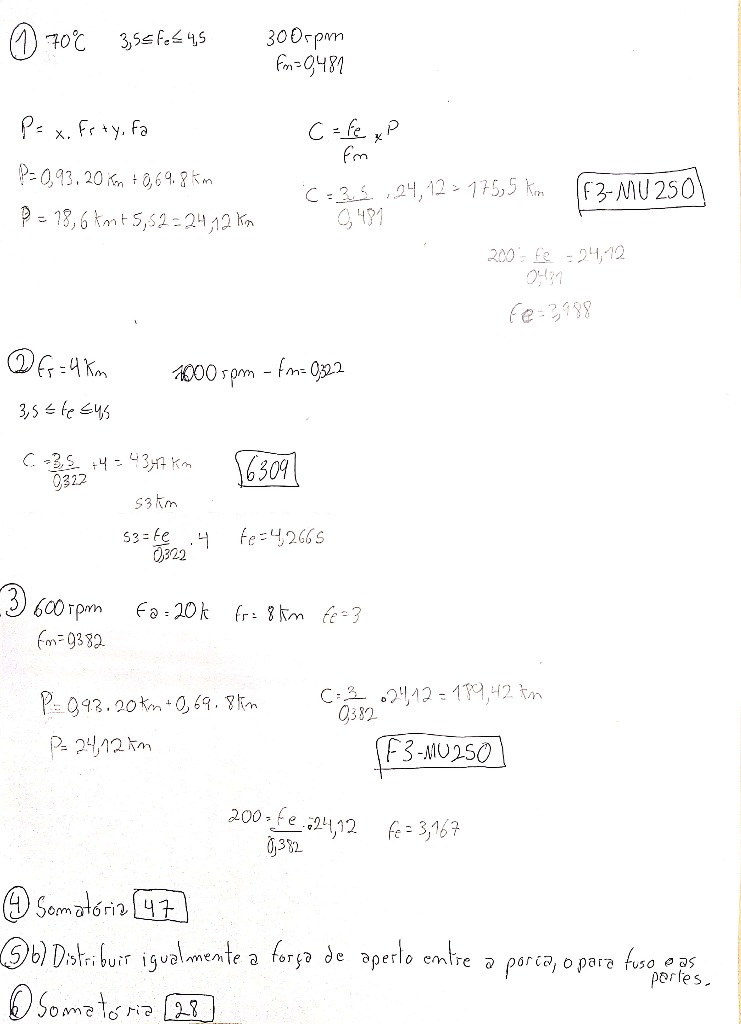 ① 70°C 3,5≤fe≤4,5 300rpm
fn=0,481
P= x. Fr + y. Fa C = fe/fn x P
P=0,93.20Kn + 0,69.8Kn
P = 18,6 Kn + 5,52 = 24,12 Kn
C = 3,5/0,481 . 24,12 = 175,5 Kn F3-MU250
200 = fe/0,481 = 24,12
fe = 3,988
② Fr = 4 Kn 1000 rpm - fn = 0,322
3,5 ≤ fe ≤ 4,5
C = 3,5/0,322 + 4 = 43,47 Kn 6309
53 Kn
53 = fe/0,322 . 4 fe = 4,2665
3 600 rpm Fa = 20 k fr = 8 Kn fe = 3
fn = 0382
P = 0,93.20 Kn + 0,69.8 Kn C = 3/0,382 . 24,12 = 189,42 Kn
P = 24,12 Kn
F3-MU250
200 = fe/0,382 . 24,12 fe = 3,167
④ Somatória 47
⑤ b) Distribuir igualmente a força de aperto entre a porca, o para fuso e as
partes.
⑥ Somatória 28